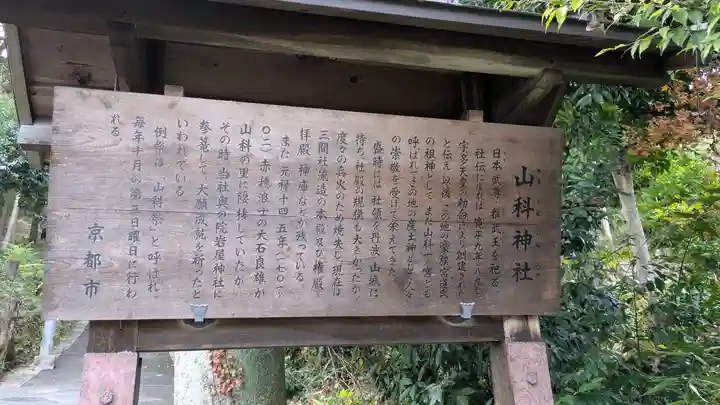 山科神社
日本武尊、稚武王を祀る。
社伝によれば、寛平九年(八九七)
宇多天皇の勅命により創建された
と伝え、以後、この地の豪族宮道氏
の祖神として、また山科一宮とも
呼ばれ、この地の産土神として人々
の崇敬を受けて栄えてきた。
盛時には、社領を丹波、山城に
持ち、社殿の規模も大きかったが
度々の兵火のため焼失し、現在は
三間社流造の本殿及び権殿、
拝殿、神庫などが残っている。
また、元禄十四、五年(一七〇一〜
〇二)赤穂浪士の大石良雄が
山科の里に隠棲していたが、
その時、当社奥の院岩屋神社に
参篭して、大願成就を祈ったと
いわれている。
例祭は、「山科祭」と呼ばれ、
毎年十月の第二日曜日に行わ
れる。
京都市